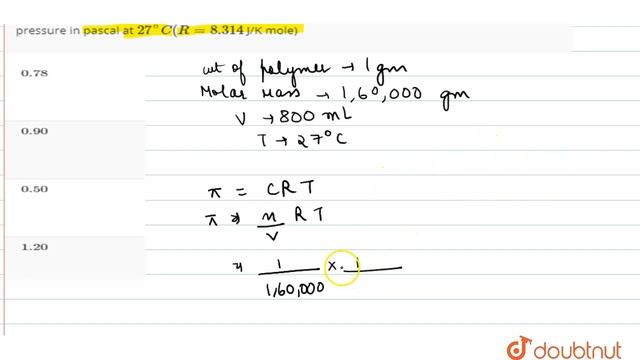 pressure in pascal at 27°C(R = 8.314 J/K mole)
0.78
0.90
0.50
1.20
wt of polymer → 1 gm
Molar Mass → 1,60,000 gm
V → 800 mL
T → 27°C
π = CRT
π = n/V RT
= 1/1,60,000 × 1
doubtnut